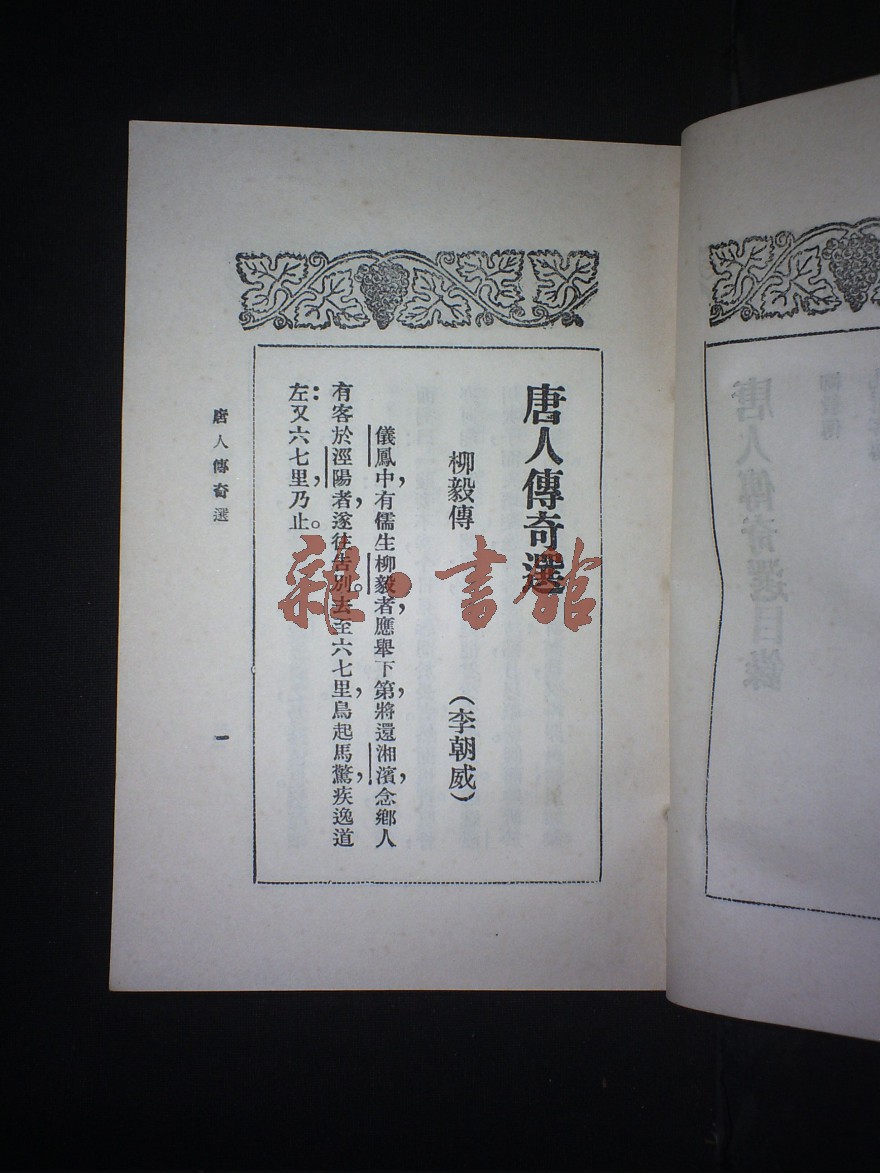 唐人傳奇選
柳毅傳　（李朝威）
儀鳳中，有儒生柳毅者，應舉下第，將還湘濱，念鄉人
有客於涇陽者，遂往告別。去至六七里，鳥起馬驚，疾逸道
左：又六七里，乃止。
唐人傳奇選　一
雜·書館
唐人傳奇選目錄
柳毅傳